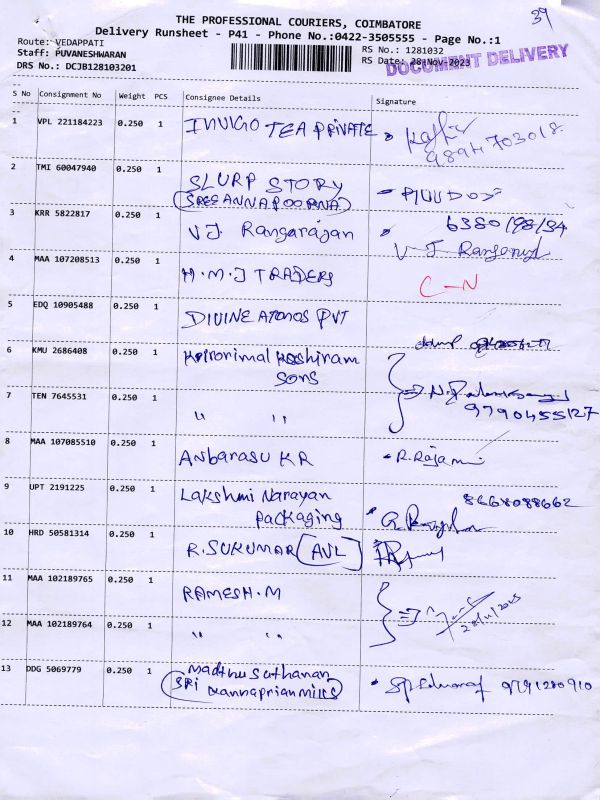 39
THE PROFESSIONAL COURIERS, COIMBATORE
Delivery Runsheet - P41 - Phone No.:0422-3505555 - Page No.:1
Route: VEDAPPATI
Staff: PUVANESHWARAN
DRS No.: DCJB128103201
RS No.: 1281032
RS Date: 28-Nov-2023
DOCUMENT DELIVERY
S No Consignment No Weight PCS Consignee Details Signature
1 VPL 221184223 0.250 1 INVIGO TEA PRIVATE
2 TMI 60047940 0.250 1 SLURP STORY
(SREE ANNAPOORNA)
3 KRR 5822817 0.250 1 V.J. Rangarajan
4 MAA 107208513 0.250 1 H.M.J TRADERS C-N
5 EDQ 10905488 0.250 1 DIVINE ATOMOS PVT
6 KMU 2686408 0.250 1
Sons
7 TEN 7645531 0.250 1 " " 9790455127
8 MAA 107085510 0.250 1 Anbarasu KR
9 UPT 2191225 0.250 1 Lakshmi Narayan 8668088662
Packaging
10 HRD 50581314 0.250 1 R.SUKUMAR (AVL)
11 MAA 102189765 0.250 1 RAMESH.M
12 MAA 102189764 0.250 1 " "
13 DDG 5069779 0.250 1 Madhusuthanan
SRI Kannaprian Mills 9791280910